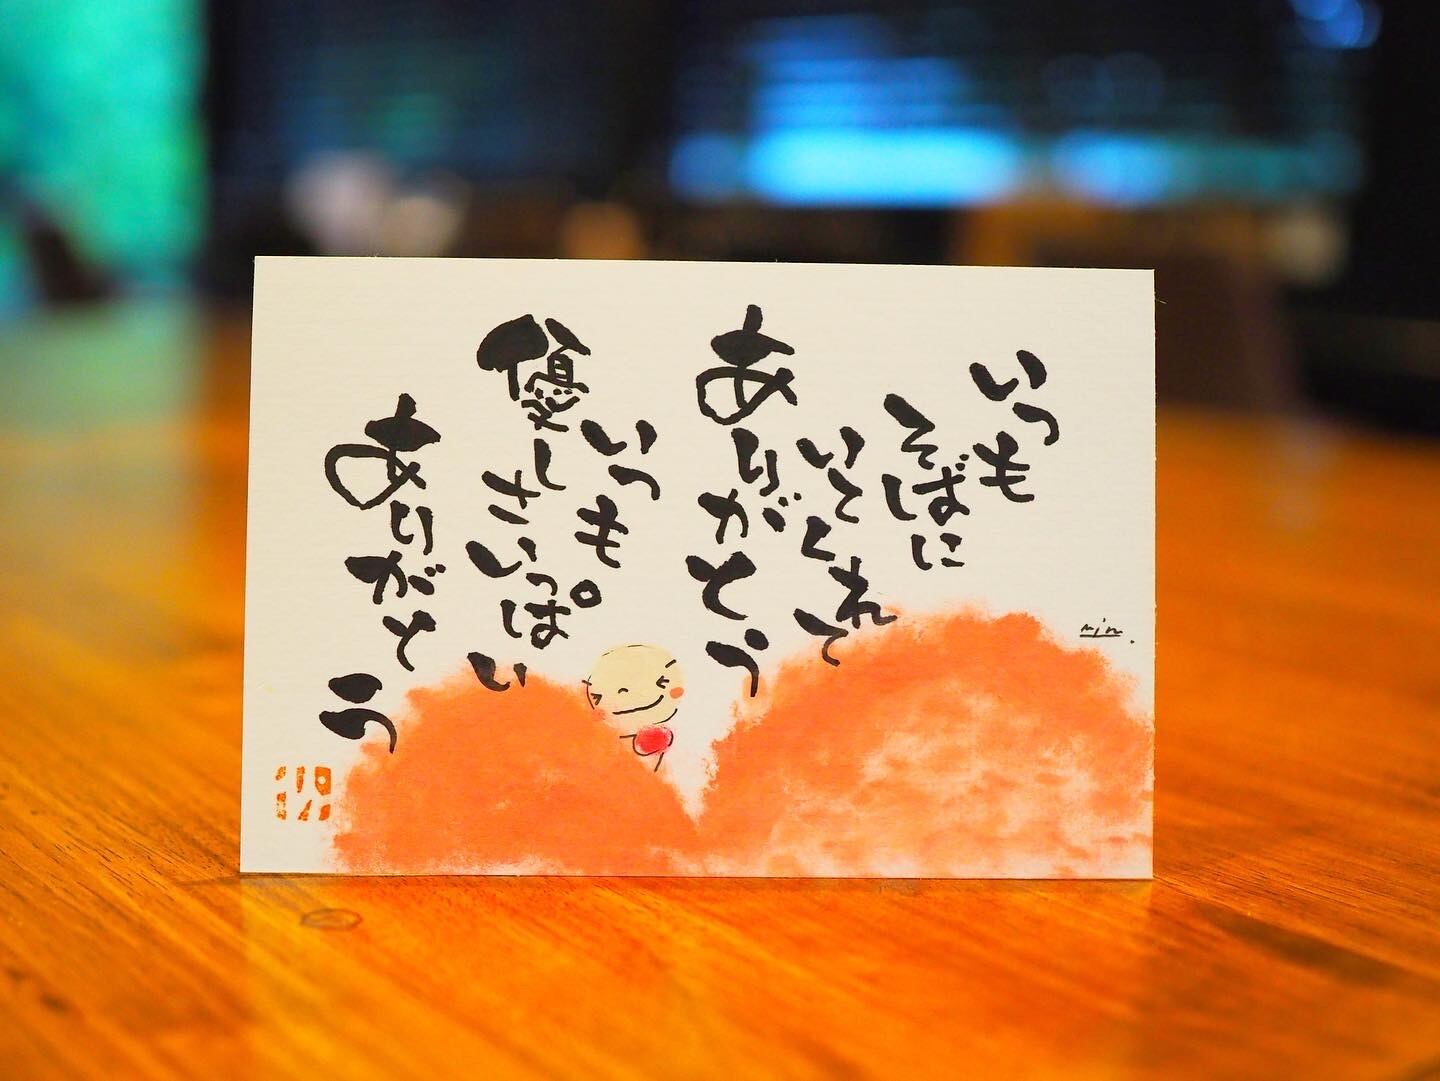 いつも
そばに
いてくれて
ありがとう
いつも
優しさいっぱい
ありがとう
rin.